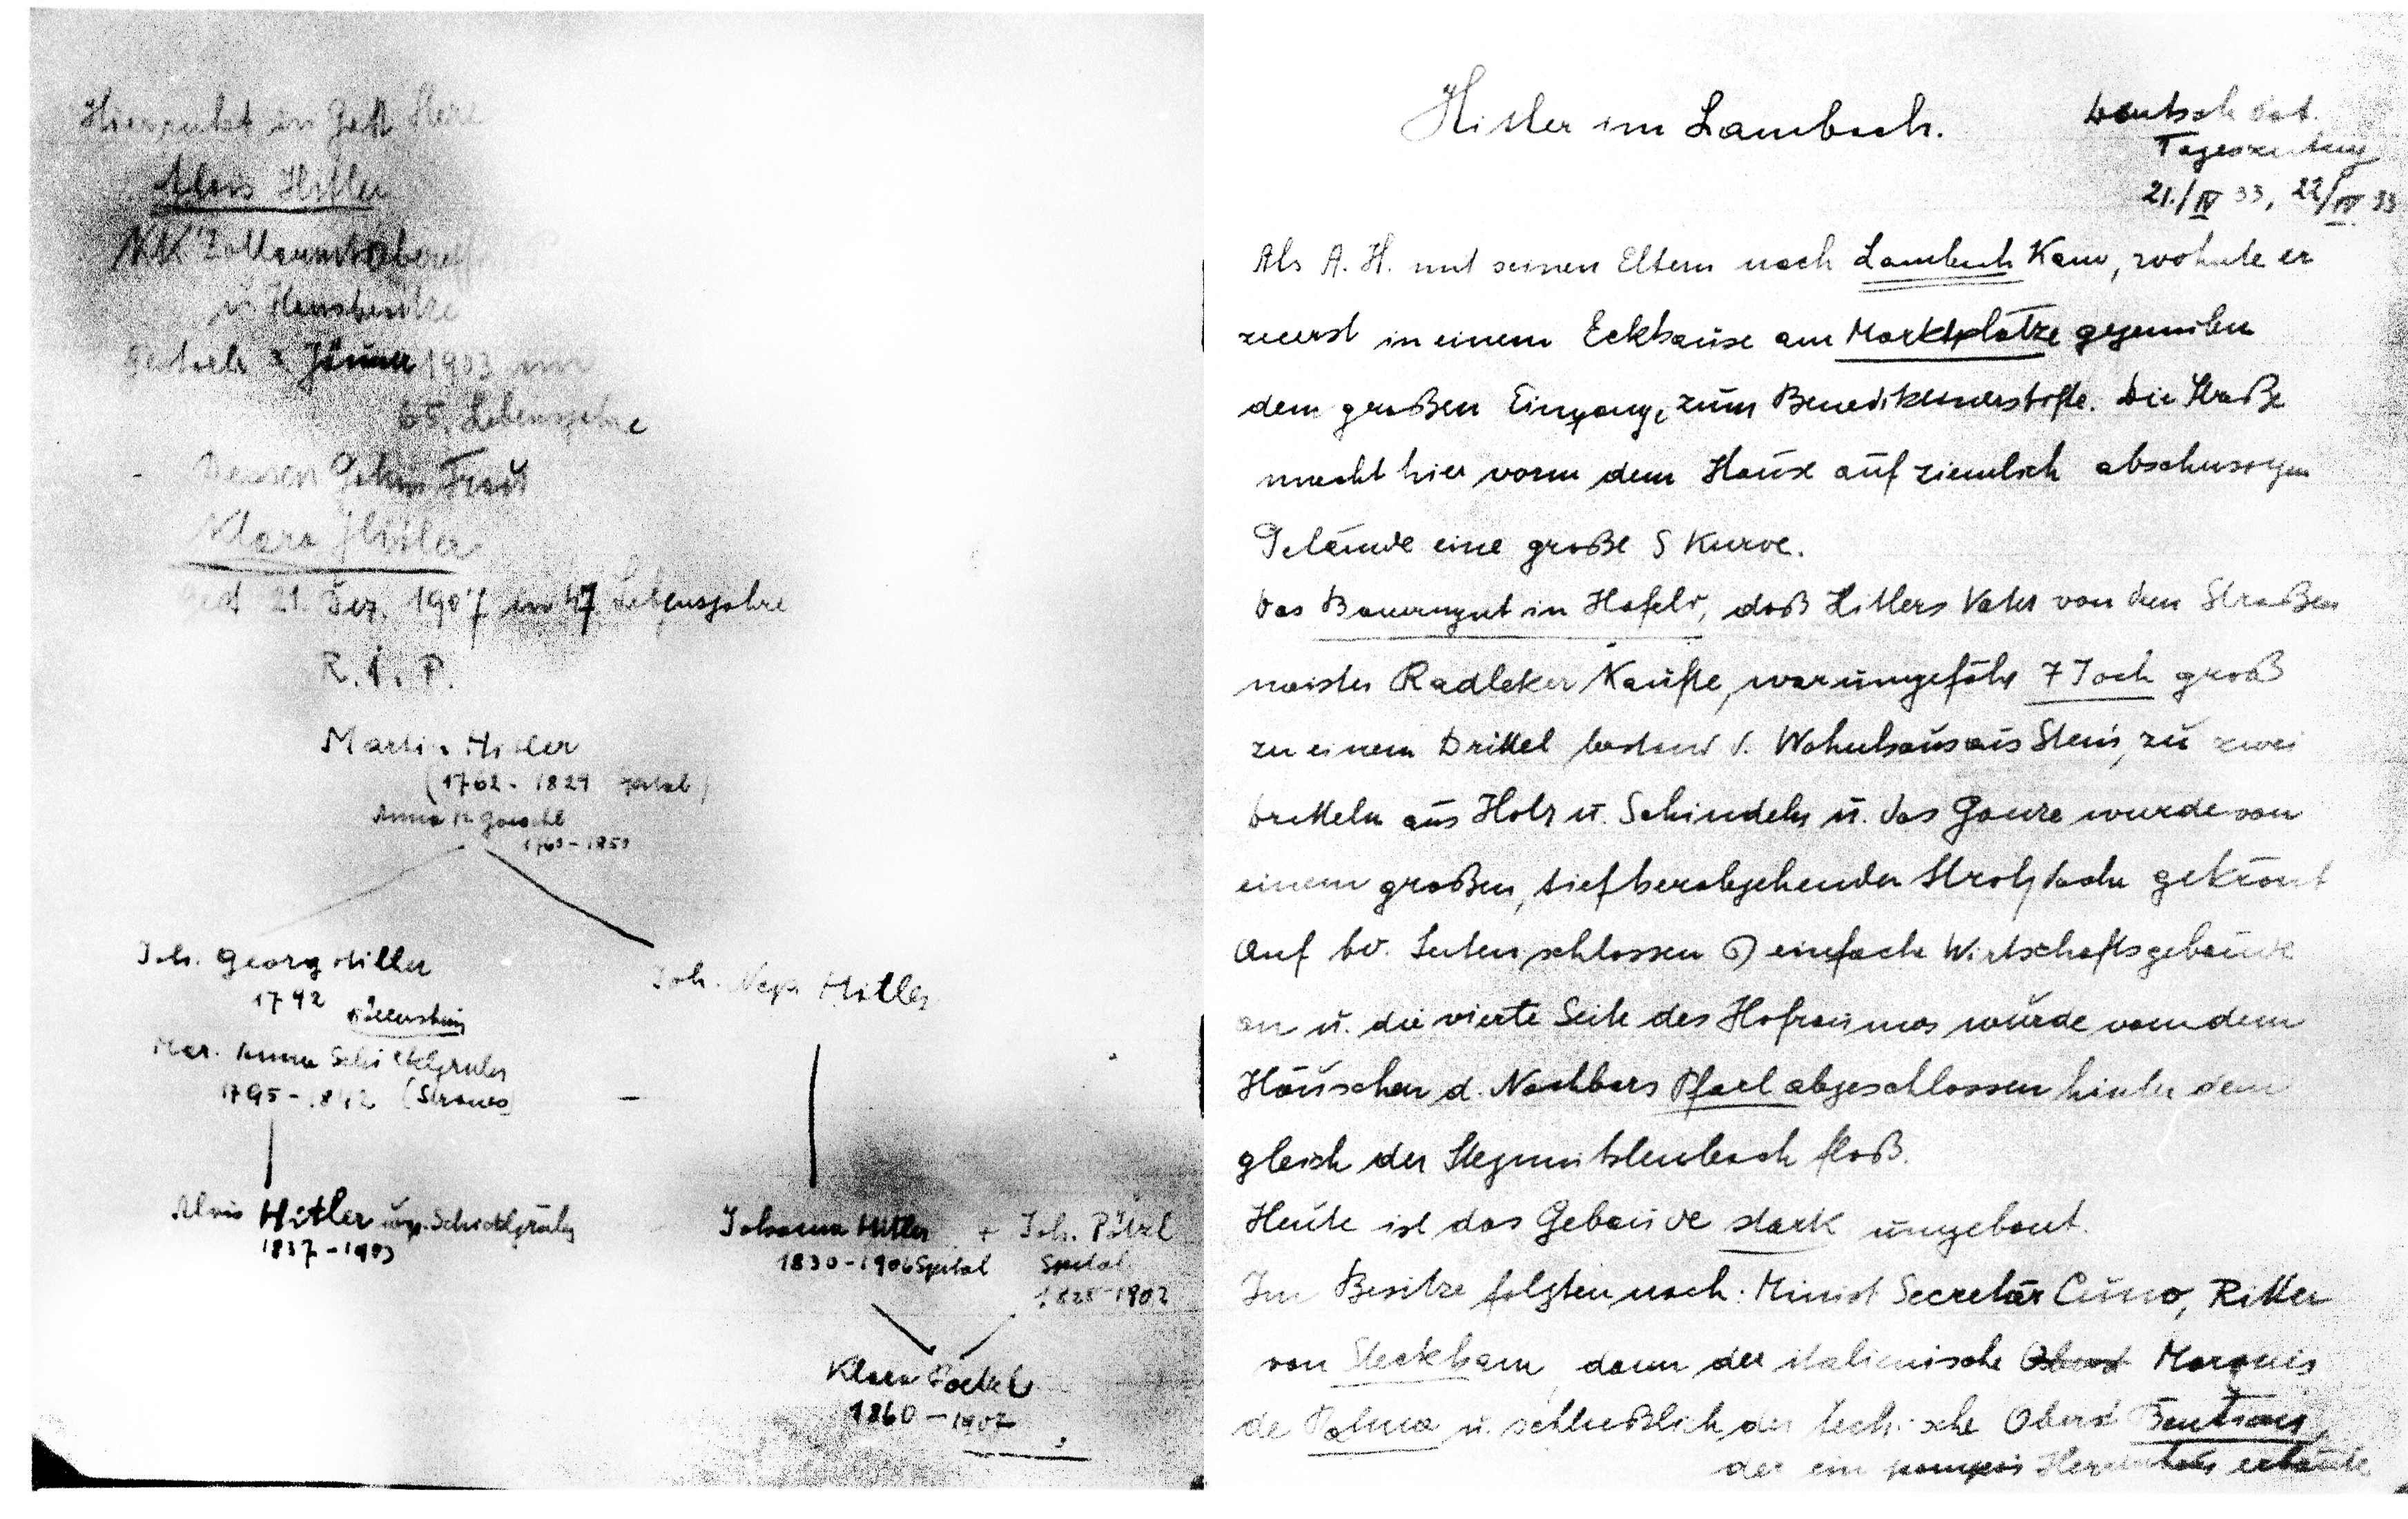 Hier ruht in Gott Herr
Alois Hitler
KK Zollamtsober
u. Hausbesitzer
Gestorb 3 Jänner 1903 im
65. Lebensjahre
Dessen Gattin Frau
Klara Hitler
Gest 21. Dez. 1907 im 47. Lebensjahre
R. I. P.
Martin Hitler
(1762 - 1829 Spital)
Anna M. Goeschl
1760 - 1854
Joh. Georg Hitler
1792
Mar. Anna Schicklgruber
1795 - 1842 (Strones)
Joh. Nep. Hitler
Alois Hitler urspr. Schicklgruber
1837 - 1903
Johanna Hitler + Joh. Pölzl
1830 - 1906 Spital Spital
1825 1902
Klara Poelzl
1860 - 1907
Hitler im Lambach.
Deutsch öst.
Tageszeitung
21./IV 33, 22/IV 33
Als A. H. mit seinen Eltern nach Lambach kam, wohnte er
zuerst in einem Eckhause am Marktplatze gegenüber
dem großen Eingang, zum Benediktinerstifte. Die Straße
macht hier vorm dem Hause auf ziemlich abschüssigen
Gelände eine große S Kurve.
Das Bauerngut in Hafeld, daß Hitlers Vater von den Straßen
meister Radleker kaufte, war ungefähr 7 Joch groß
zu einem Drittel bestand d. Wohnhaus aus Stein, zu zwei
Dritteln aus Holz u. Schindeln u. das Ganze wurde von
einem großen, tief herabgehenden Strohdache gekrönt
Auf bd. Seiten schlossen einfache Wirtschaftsgebäude
an u. die vierte Seite des Hofraumes wurde von dem
Häuschen d. Nachbars Pfarl abgeschlossen hinter dem
gleich der Stegmühlenbach floß.
Heute ist das Gebäude stark umgebaut.
Im Besitze folgten nach: Minist Secretär Cuno, Ritter
von Steckham, dann der italienische Oberst Marquis
de Palma u. schließlich der tschische Oberst
der ein pompös Herrenhaus erbaute